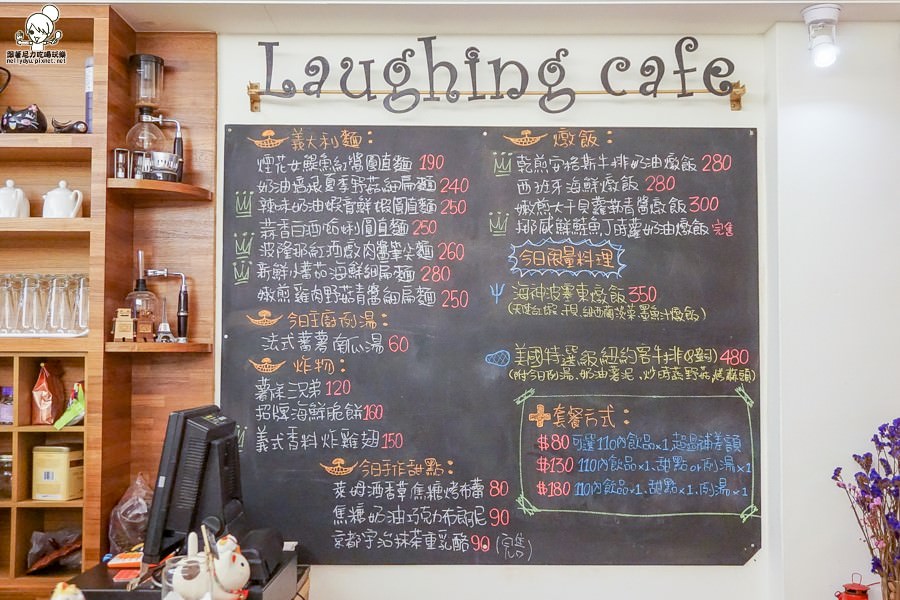 跟著尼力吃喝玩樂
nellydyu.pixnet.net
Laughing cafe
義大利麵：
煙花女鯷魚紅醬圓直麵 190
奶油過癮夏季野菇細扁麵 240
辣味奶油蝦青醬蝦圓直麵 250
蒜香白酒蛤蜊圓直麵 250
波隆那紅酒燉肉醬筆尖麵 260
新鮮小蕃茄海鮮細扁麵 280
嫩煎雞肉野菇青醬細扁麵 250
今日主廚例湯：
法式蕃薯南瓜湯 60
炸物：
薯條三兄弟 120
招牌海鮮脆餅 160
義式香料炸雞翅 150
今日手作甜點：
萊姆酒香草焦糖烤布蕾 80
焦糖奶油巧克力布朗尼 90
京都宇治抹茶重乳酪 90 (完售)
燉飯：
乾煎安格斯牛排奶油燉飯 280
西班牙海鮮燉飯 280
嫩煎大干貝蘿勒青醬燉飯 300
挪威鮮鮭魚丁時蘿奶油燉飯 完售
今日限量料理
海神波塞東燉飯 350
(天使紅蝦、現、紐西蘭淡菜墨魚汁燉飯)
美國特選級紐約客牛排(8盎司) 480
(附今日例湯、奶油薯泥、炒時蔬野菇,烤蒜頭)
套餐方式：
$80 可選110內飲品x1,超過補差額
$130 110內飲品x1、甜點 or 例湯x1
$180 110內飲品x1、甜點x1、例湯x1